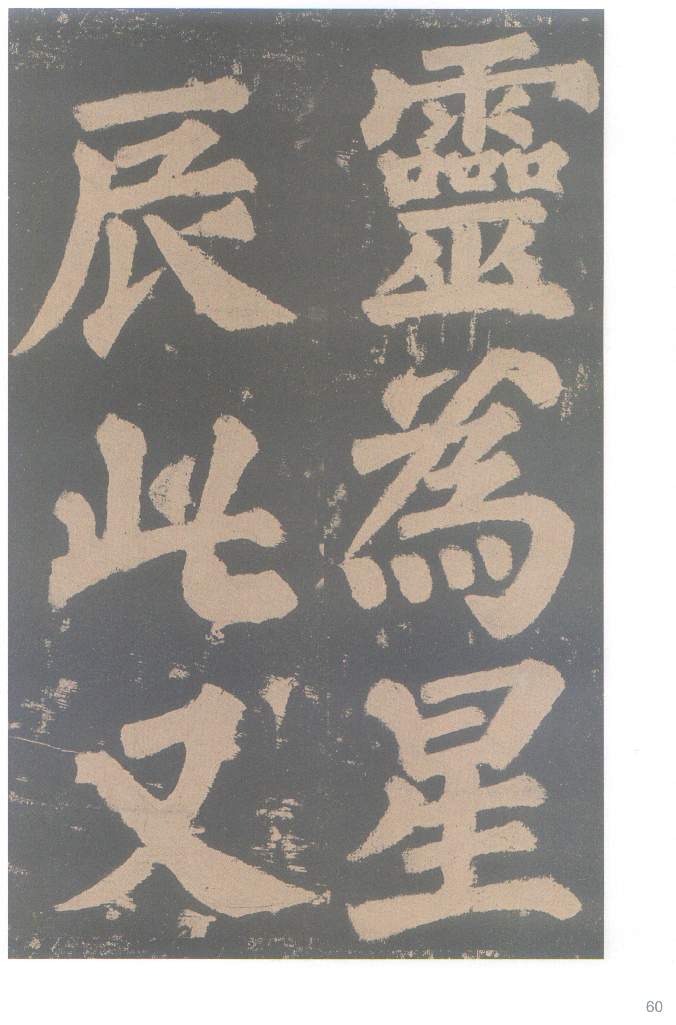 靈為星
辰此又
60